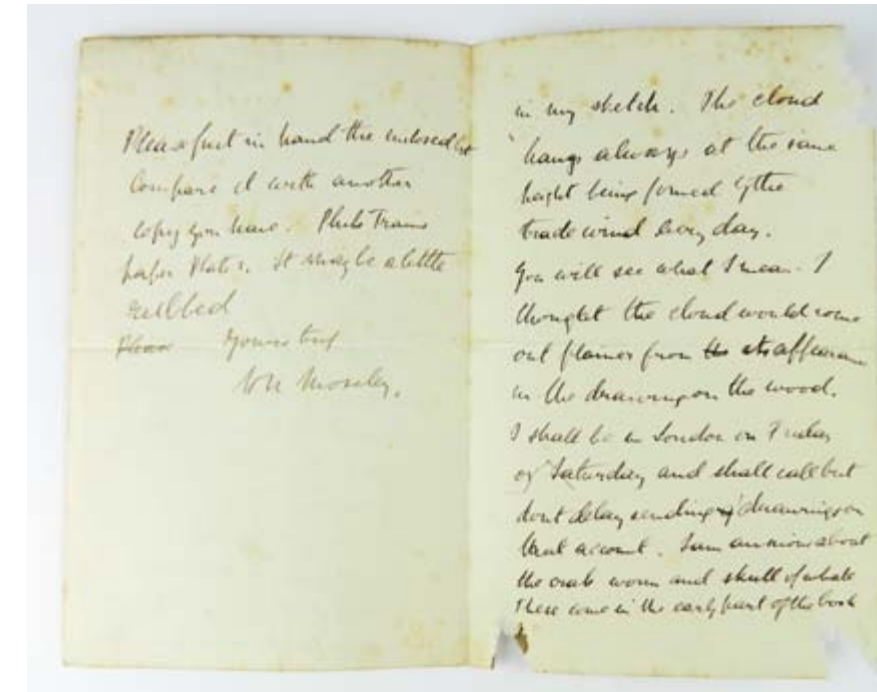 Please put in hand the enclosed but
Compare it with another
copy you have. Phil Trans
paper Plates. It may be a little
rubbed
Please Yours truly
H N Moseley.
in my sketch. The cloud
hangs always at the same
height being formed by the
trade wind every day.
You will see what I mean. I
thought the cloud would come
out plainer from the its appearance
in the drawing on the wood.
I shall be in London on Friday
or Saturday and shall call but
dont delay sending drawings on
that account. I am anxious about
the crab worm and skull of whale
These come in the early part of the book